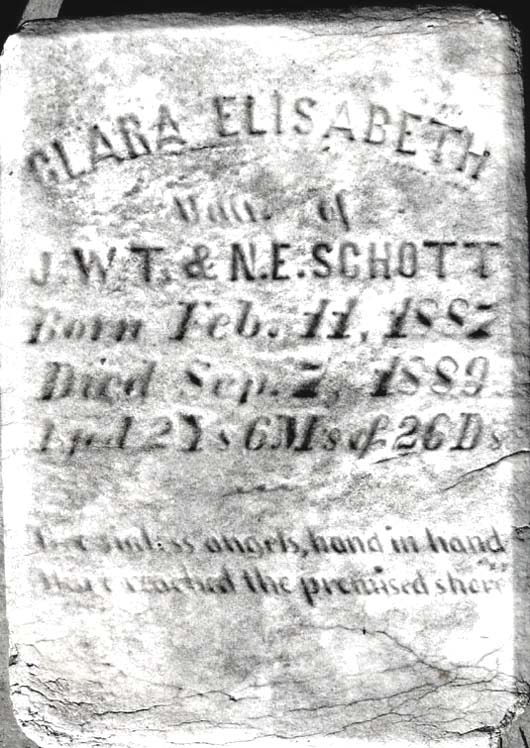 CLARA ELISABETH
Dau. of
J.W.T. & N.E. SCHOTT
Born Feb. 11, 1887
Died Sep. 7, 1889
Aged 2 Ys 6 Ms & 26 Ds
sinless angels, hand in hand
Have reached the promised shore